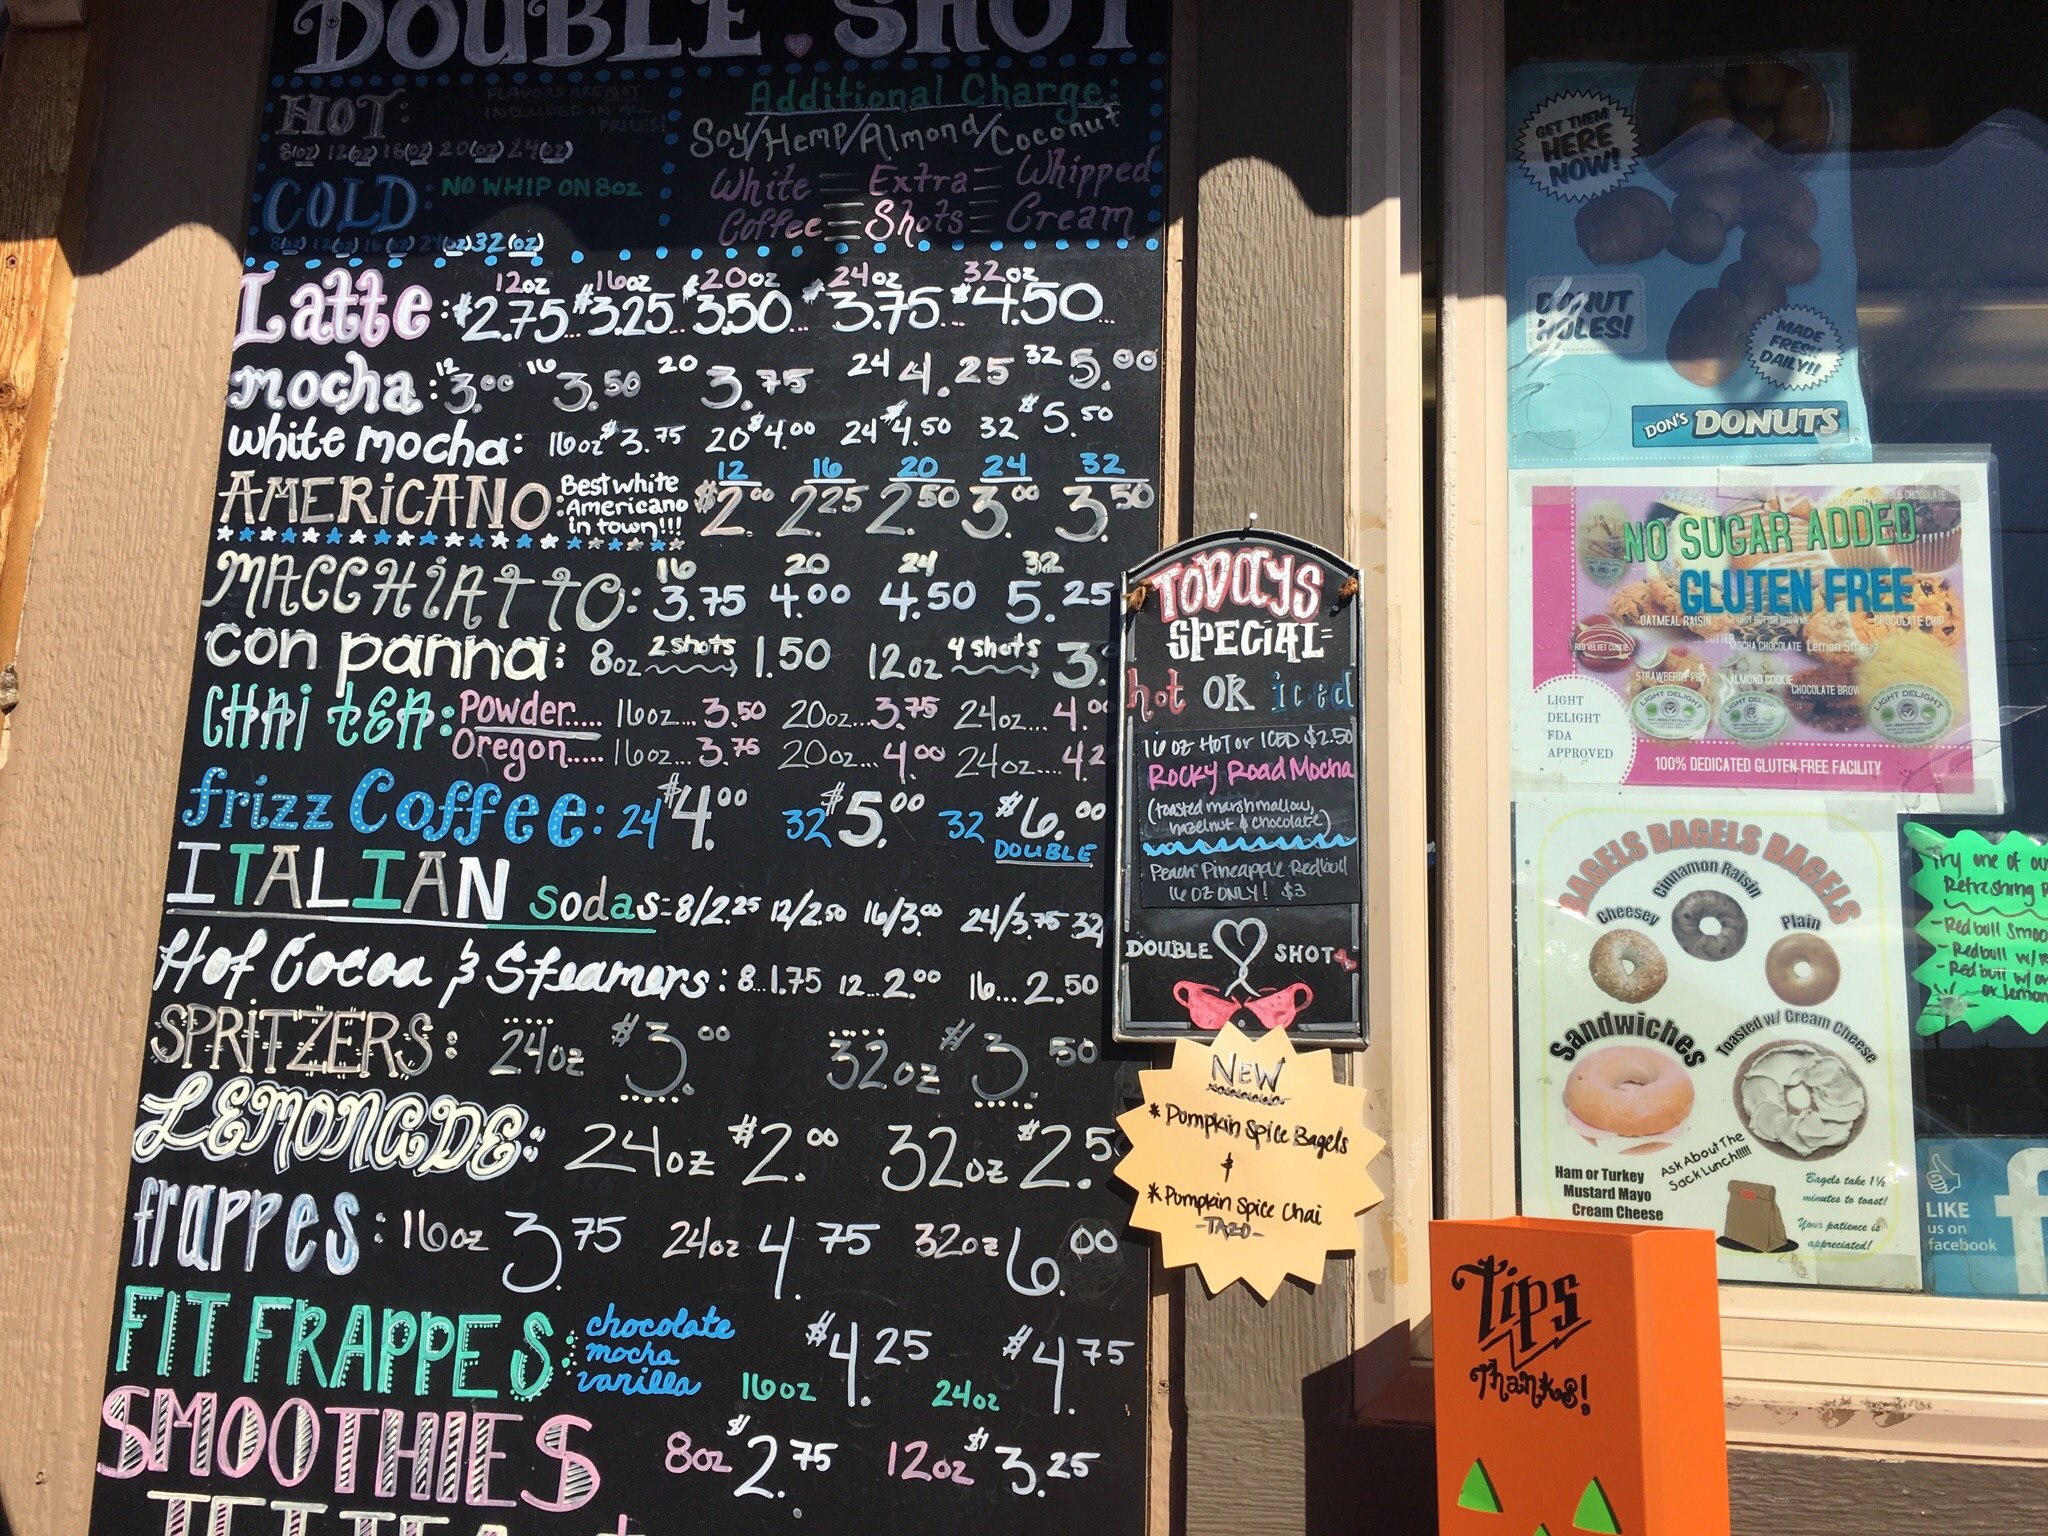 DOUBLE SHOT
HOT:
FLAVORS ARE NOT
INCLUDED IN ALL
PRICES!
8(oz) 12(oz) 16(oz) 20(oz) 24(oz)
COLD: NO WHIP ON 8oz
8oz 12oz 16(oz) 24(oz) 32(oz)
Additional Charge:
Soy/Hemp/Almond/Coconut
White Extra Whipped
Coffee Shots Cream
12oz 16oz 20oz 24oz 32oz
Latte: $2.75... $3.25... $3.50... $3.75... $4.50...
mocha: 12 3.00 16 3.50 20 3.75 24 4.25 32 5.00
white mocha: 16oz $3.75 20 $4.00 24 $4.50 32 $5.50
AMERICANO: Best white Americano in town!!!
12 16 20 24 32
$2.00 2.25 2.50 3.00 3.50
16 20 24 32
MACCHIATTO: 3.75 4.00 4.50 5.25
con panna: 8oz 2 shots 1.50 12oz 4 shots 3.
CHAI tEA: Powder..... 16oz... 3.50 20oz... 3.75 24oz... 4.00
Oregon..... 16oz... 3.75 20oz... 4.00 24oz.... 4.2
frizz Coffee: 24 $4.00 32 $5.00 32 $6.00
DOUBLE
ITALIAN sodas: 8/2.25 12/2.50 16/3.00 24/3.75 32/
Hot Cocoa & Steamers: 8...1.75 12...2.00 16...2.50
SPRITZERS: 24oz $3.00 32oz $3.50
LEMONADE: 24oz $2.00 32oz $2.5
frappes: 16oz 3.75 24oz 4.75 32oz 6.00
FIT FRAPPES: chocolate mocha vanilla 16oz $4.25 24oz $4.75
SMOOTHIES 8oz $2.75 12oz $3.25
TODAYS
SPECIAL
hot OR iced
16 OZ HOT or ICED $2.50
Rocky Road Mocha
(toasted marshmallow,
hazelnut & chocolate)
Peach Pineapple Redbull
16 OZ ONLY! $3
DOUBLE SHOT
NEW
* Pumpkin Spice Bagels
&
* Pumpkin Spice Chai
-TAZO-
GET THEM
HERE
NOW!
DONUT
HOLES!
MADE
FRESH
DAILY!!
DON'S DONUTS
NO SUGAR ADDED
GLUTEN FREE
DOUBLE CHOCOLATE
OATMEAL RAISIN
CHOCOLATE CHIP
RED VELVET COOKIE
MOCHA CHOCOLATE
Lemon
STRAWBERRY
ALMOND COOKIE
CHOCOLATE BROW
LIGHT DELIGHT
LIGHT DELIGHT
LIGHT DELIGHT
LIGHT
DELIGHT
FDA
APPROVED
100% DEDICATED GLUTEN FREE FACILITY
BAGELS BAGELS BAGELS
Cinnamon Raisin
Cheesey
Plain
Sandwiches
Toasted w/ Cream Cheese
Ham or Turkey
Mustard Mayo
Cream Cheese
Ask About The
Sack Lunch!!!!!
Bagels take 1½
minutes to toast!
Your patience is
appreciated!
Try one of ou
Refreshing
- Redbull Smoo
- Redbull w/
- Redbull w/
or lemon
LIKE
us on
facebook
f
Tips
Thanks!